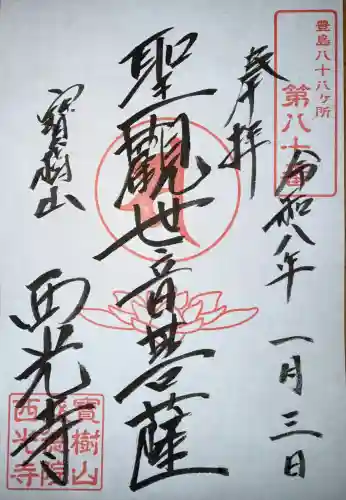 豊島八十八ケ所
第八十番
奉拝
令和八年 一月三日
聖觀世音菩薩
寶樹山
西光寺
寶樹山
院
西光寺